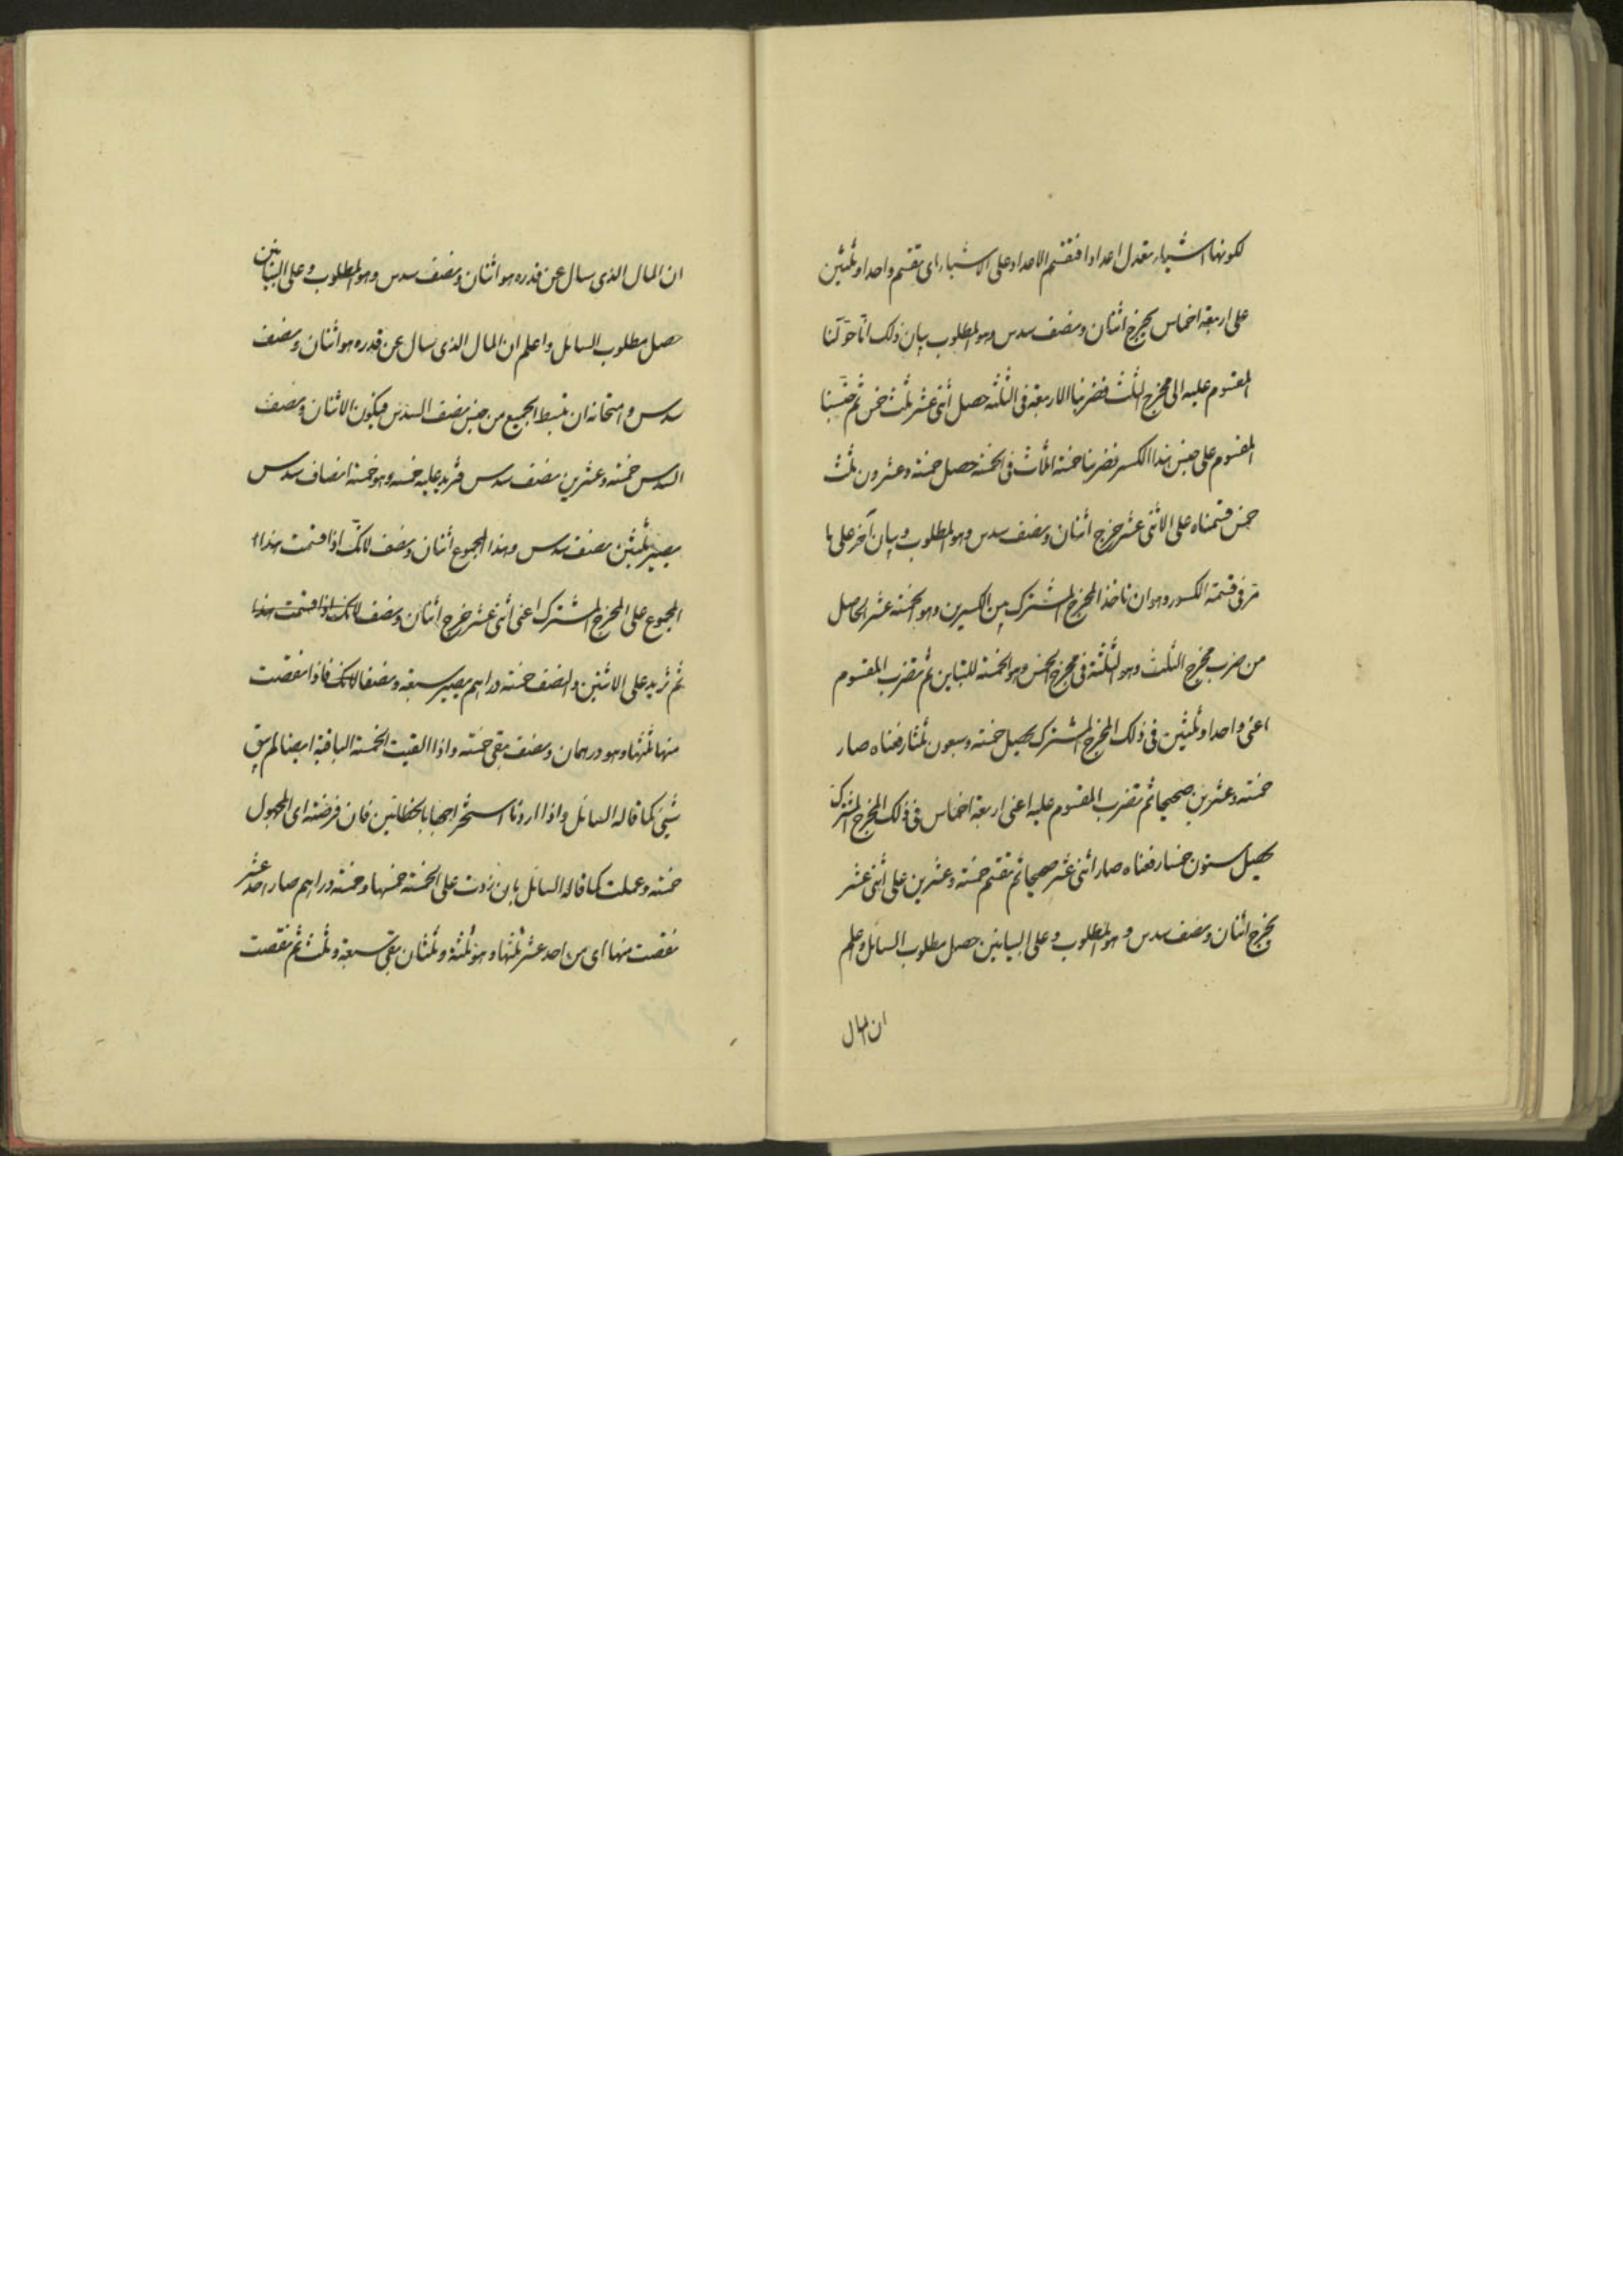 لكونها اشياء تعدل اعدادا فنقسم الاعداد على الاشياء اى نقسم واحدا وثلثين
على اربعة اخماس يخرج اثنان ونصف سدس وهو المطلوب بيان ذلك انا حولنا
المقسوم عليه الى مخرج الثلث فضربنا الاربعة فى الثلثه حصل اثنى عشر ثلث خمس ثم جنسنا
المقسوم على جنس هذا الكسر فضربنا خمسة اثلاث فى الخمسة حصل خمسة وعشرون ثلث
خمس قسمناه على الاثنى عشر خرج اثنان ونصف سدس وهو المطلوب وبيان آخر على ما
مر فى قسمة الكسور وهو ان تاخذ المخرج المشترك بين الكسرين وهو الخمسة عشر الحاصل
من ضرب مخرج الثلث وهو الثلثة فى مخرج الخمس وهو الخمسة للتباين ثم تضرب المقسوم
اعنى واحدا وثلثين فى ذلك المخرج المشترك يحصل خمسة وسبعون ثلثا رفعناه صار
خمسة وعشرين صحيحا ثم تضرب المقسوم عليه اعنى اربعة اخماس فى ذلك المخرج المشترك
يحصل ستون خمسا رفعناه صار اثنى عشر صحيحا ثم نقسم خمسة وعشرين على اثنى عشر
يخرج اثنان ونصف سدس وهو المطلوب وعلى البيانين حصل مطلوب السائل واعلم
ان المال
ان المال الذى سال عن قدره هو اثنان ونصف سدس وهو المطلوب وعلى البيانين
حصل مطلوب السائل واعلم ان المال الذى سال عن قدره هو اثنان ونصف
سدس وامتحانه ان تبسط الجميع من جنس نصف السدس فيكون الاثنان ونصف
السدس خمسة وعشرين نصف سدس فزيد عليه خمسه وهو خمسة انصاف سدس
يصير ثلثين نصف سدس وهذا المجموع اثنان ونصف لانك اذا قسمت هذا
المجموع على المخرج المشترك اعنى اثنى عشر خرج اثنان ونصف لانك اذا قسمت هذا
ثم نزيد على الاثنين والنصف خمسة دراهم يصير سبعة ونصفا لانك فاذا نقصت
منها ثلثها وهو درهمان ونصف بقى خمسة واذا القيت الخمسة الباقية ايضا لم يبق
شيئ كما قاله السائل واذا اردنا استخراجها بالخطائين فان فرضته اى المجهول
خمسة وعملت كما قاله السائل بان زدت على الخمسة خمسها وخمسة دراهم صار احد عشر
نقصت منها اى من احد عشر ثلثها وهو ثلثة وثلثان بقى سبعة وثلث ثم نقصت